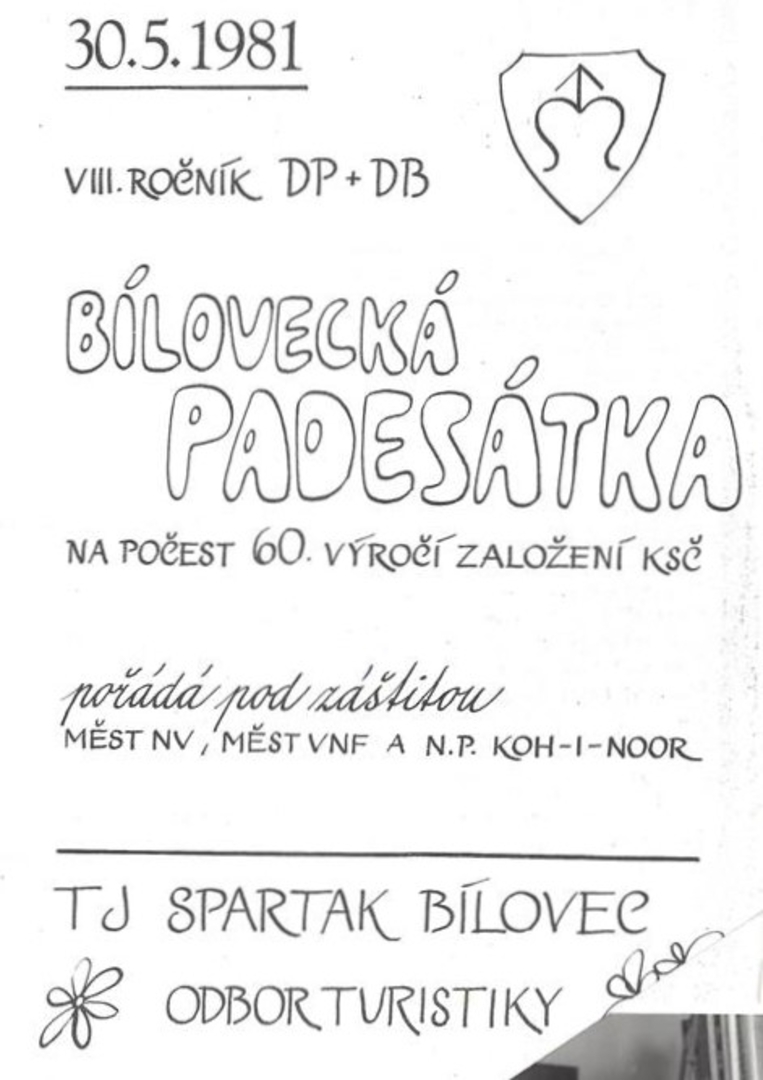 30.5.1981
VIII. ROČNÍK DP + DB
BÍLOVECKÁ
PADESÁTKA
NA POČEST 60. VÝROČÍ ZALOŽENÍ KSČ
pořádá pod záštitou
MĚST NV, MĚST VNF A N.P. KOH-I-NOOR
TJ SPARTAK BÍLOVEC
ODBOR TURISTIKY